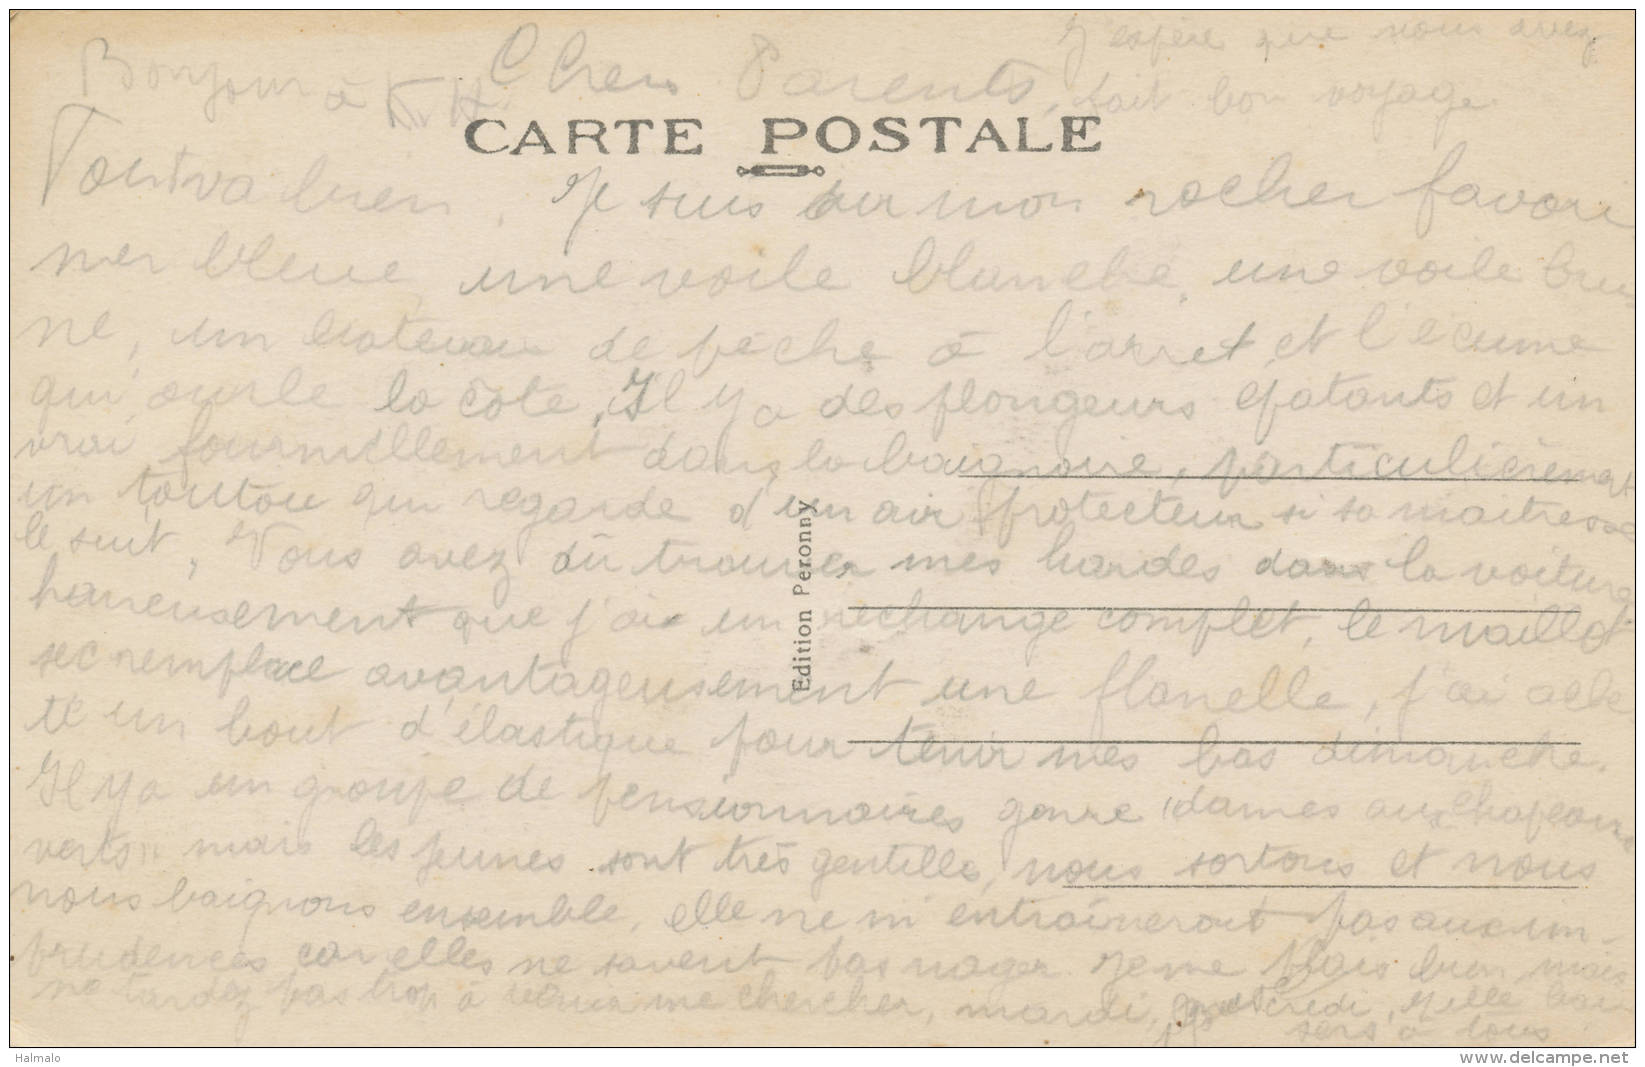 J'espère que vous avez
Bonjour à Chers Parents, fait bon voyage
CARTE POSTALE
Tout va bien. Je suis sur mon rocher favori
mer bleue, une voile blanche, une voile bru
ne, un bateau de pêche à l'arret, et l'ecume
qui ourle la côte. Il y a des plongeurs epatants et un
vrai fourmillement dans la baignoire, particulièrement
un toutou qui regarde d'un air protecteur si sa maitresse
le suit. Vous avez dû trouver mes hardes dans la voiture
hereusement que j'ai un rechange complet, le maillot
sec remplace avantageusement une flanelle, j'ai ache
té un bout d'élastique pour tenir mes bas dimanche.
Il y a un groupe de pensionnaires genre "dames aux chapeaux
verts" mais les jeunes sont très gentilles, nous sortons et nous
nous baignons ensemble, elle ne m'entraîneront pas aux im-
prudences car elles ne savent pas nager. Je me plais bien mais
ne tardez pas trop à venir me chercher, mardi, mercredi, Mille bai
sers à tous
Edition Peronny
Halmalo
www.delcampe.net